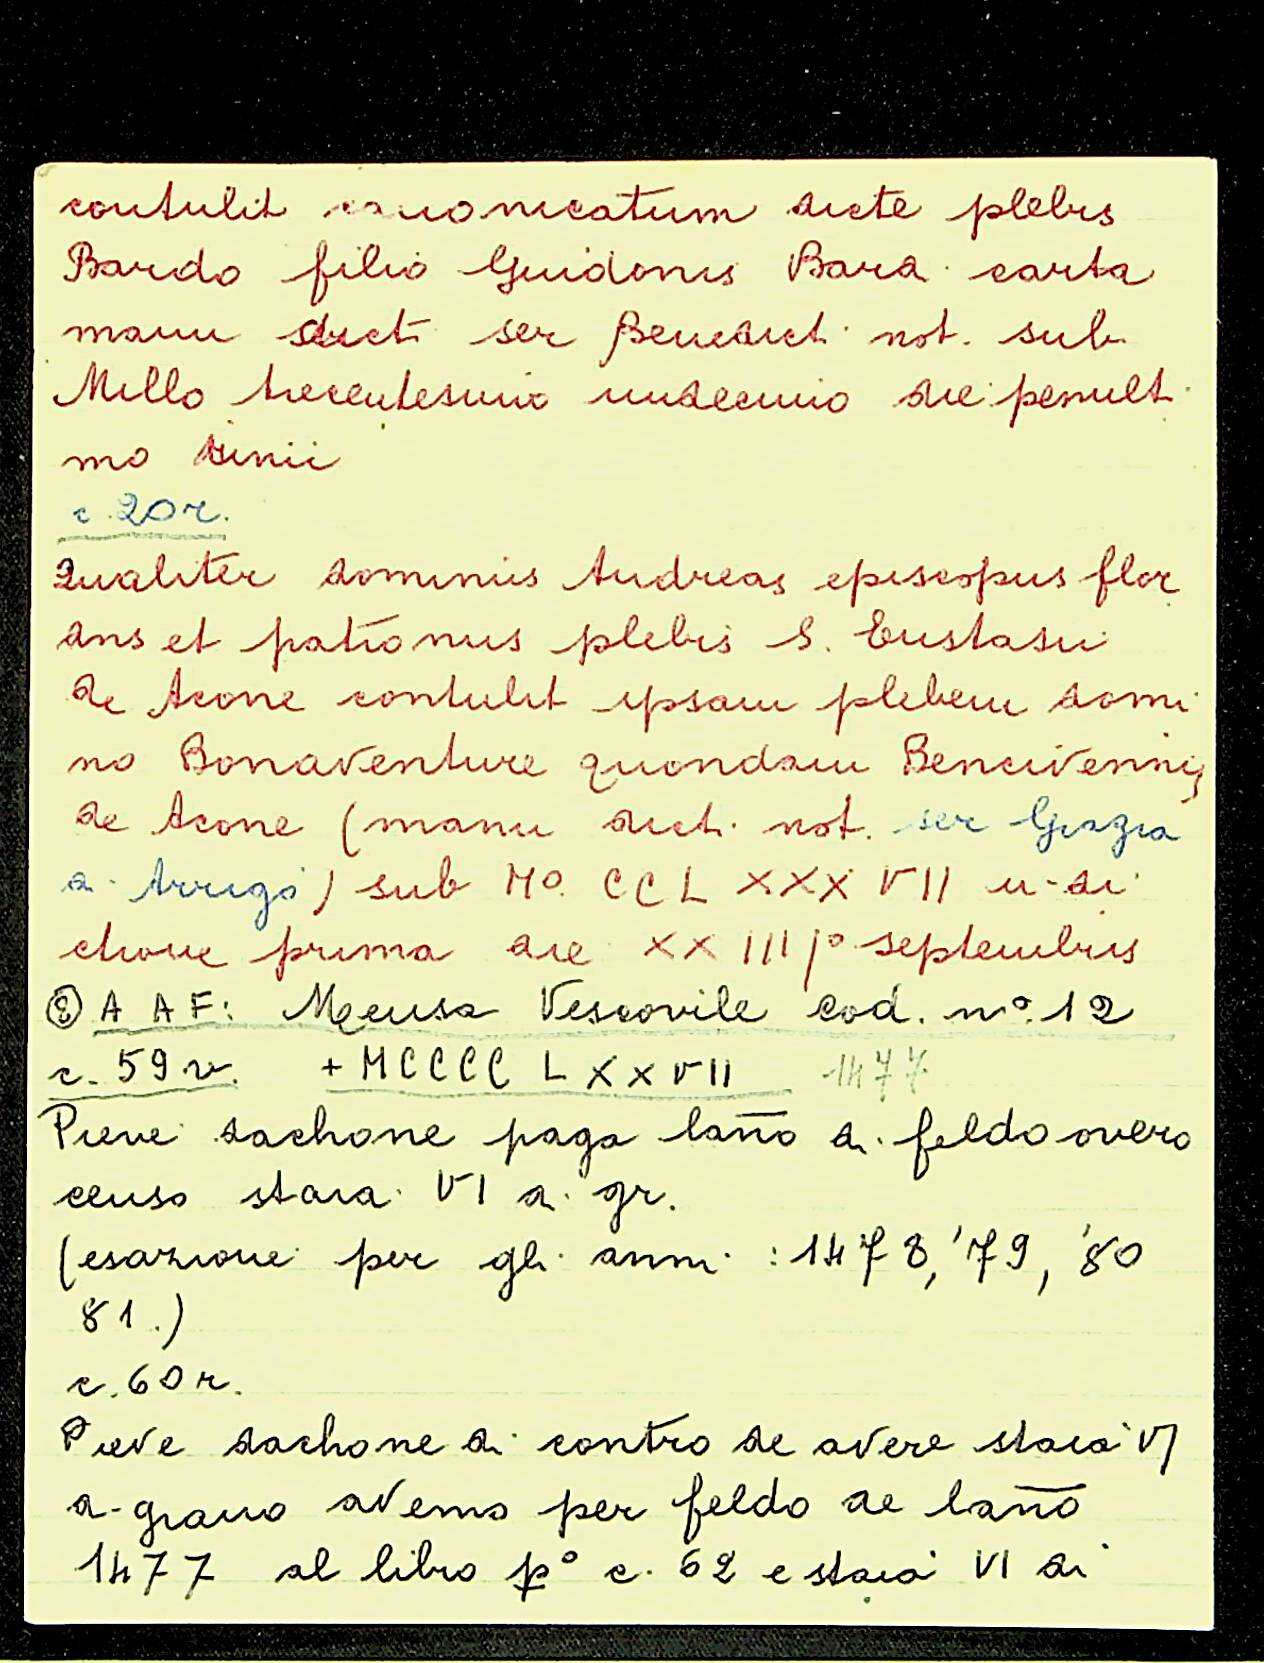 contulit canonicatum dicte plebis
Bardo filio Guidonis Bara carta
manu dict. ser Benedict. not. sub
Millo trecentesimo undecimo die penult
mo Iunii
c. 20 r.
Qualiter dominus Andreas episcopus flor
ans et patronus plebis S. Eustasii
de Acone contulit ipsam plebem domi
no Bonaventure quondam Bencivennis
de Acone (manu dict. not. ser Grazia
di Arrigo) sub Mo. CCLXXXVII indi
ctione prima die XXIIIIo septembris
② A A F: Mensa Vescovile Cod. n°. 12
c. 59 v. + MCCCCLXXVII 1477
Pieve dachone paga lano̅ di feldo overo
censo staia VI di gr.
(esazione per gli anni : 1478, '79, '80
81.)
c. 60 r.
Pieve dachone di contro de avere staia VI
di grano avemo per feldo de lano̅
1477 al libro p° c. 62 e staia VI di